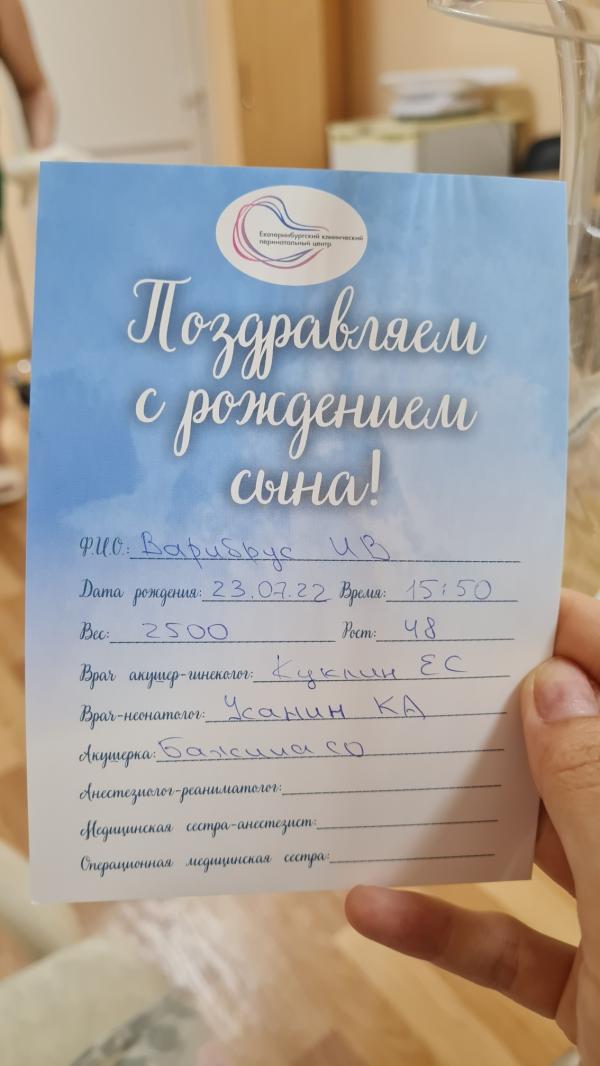 Екатеринбургский клинический
перинатальный центр
Поздравляем
с рождением
сына!
Ф.И.О.: Варибрус ИВ
Дата рождения: 23.07.22 Время: 15:50
Вес: 2500 Рост: 48
Врач акушер-гинеколог: Куклин ЕС
Врач-неонатолог: Усанин КА
Акушерка: Бажина СО
Анестезиолог-реаниматолог:
Медицинская сестра-анестезист:
Операционная медицинская сестра: